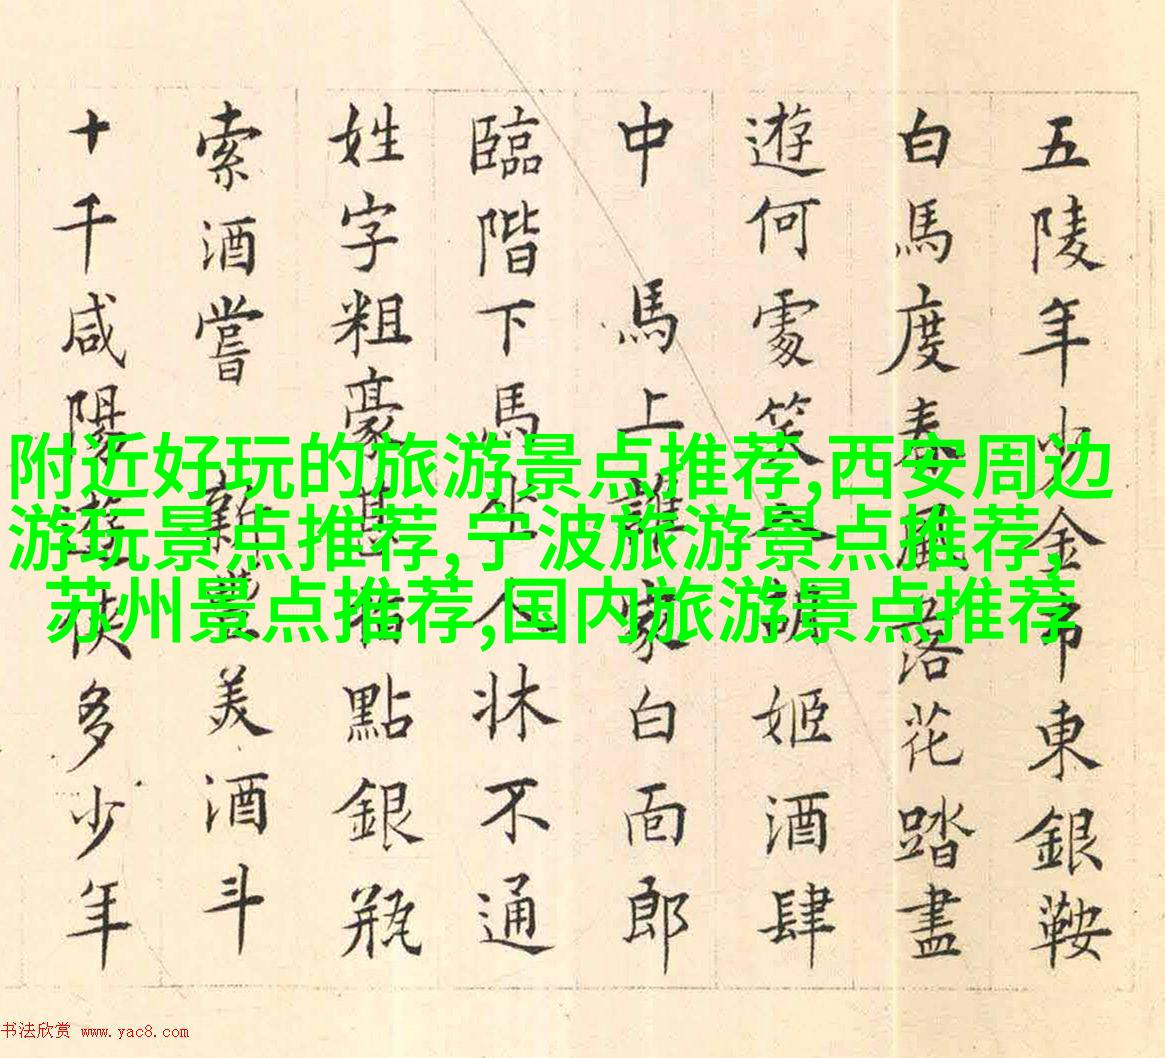 五陵年少金市東銀鞍
白馬度春風落花踏盡
遊何處笑入胡姬酒肆
中 馬上誰家白面郎
臨階下馬坐人牀不通
姓字粗豪甚指點銀瓶
索酒嘗 新豐美酒斗
十千咸陽遊俠多少年
附近好玩的旅游景点推荐,西安周边
游玩景点推荐,宁波旅游景点推荐,
苏州景点推荐,国内旅游景点推荐
书法欣赏 www.yac8.com